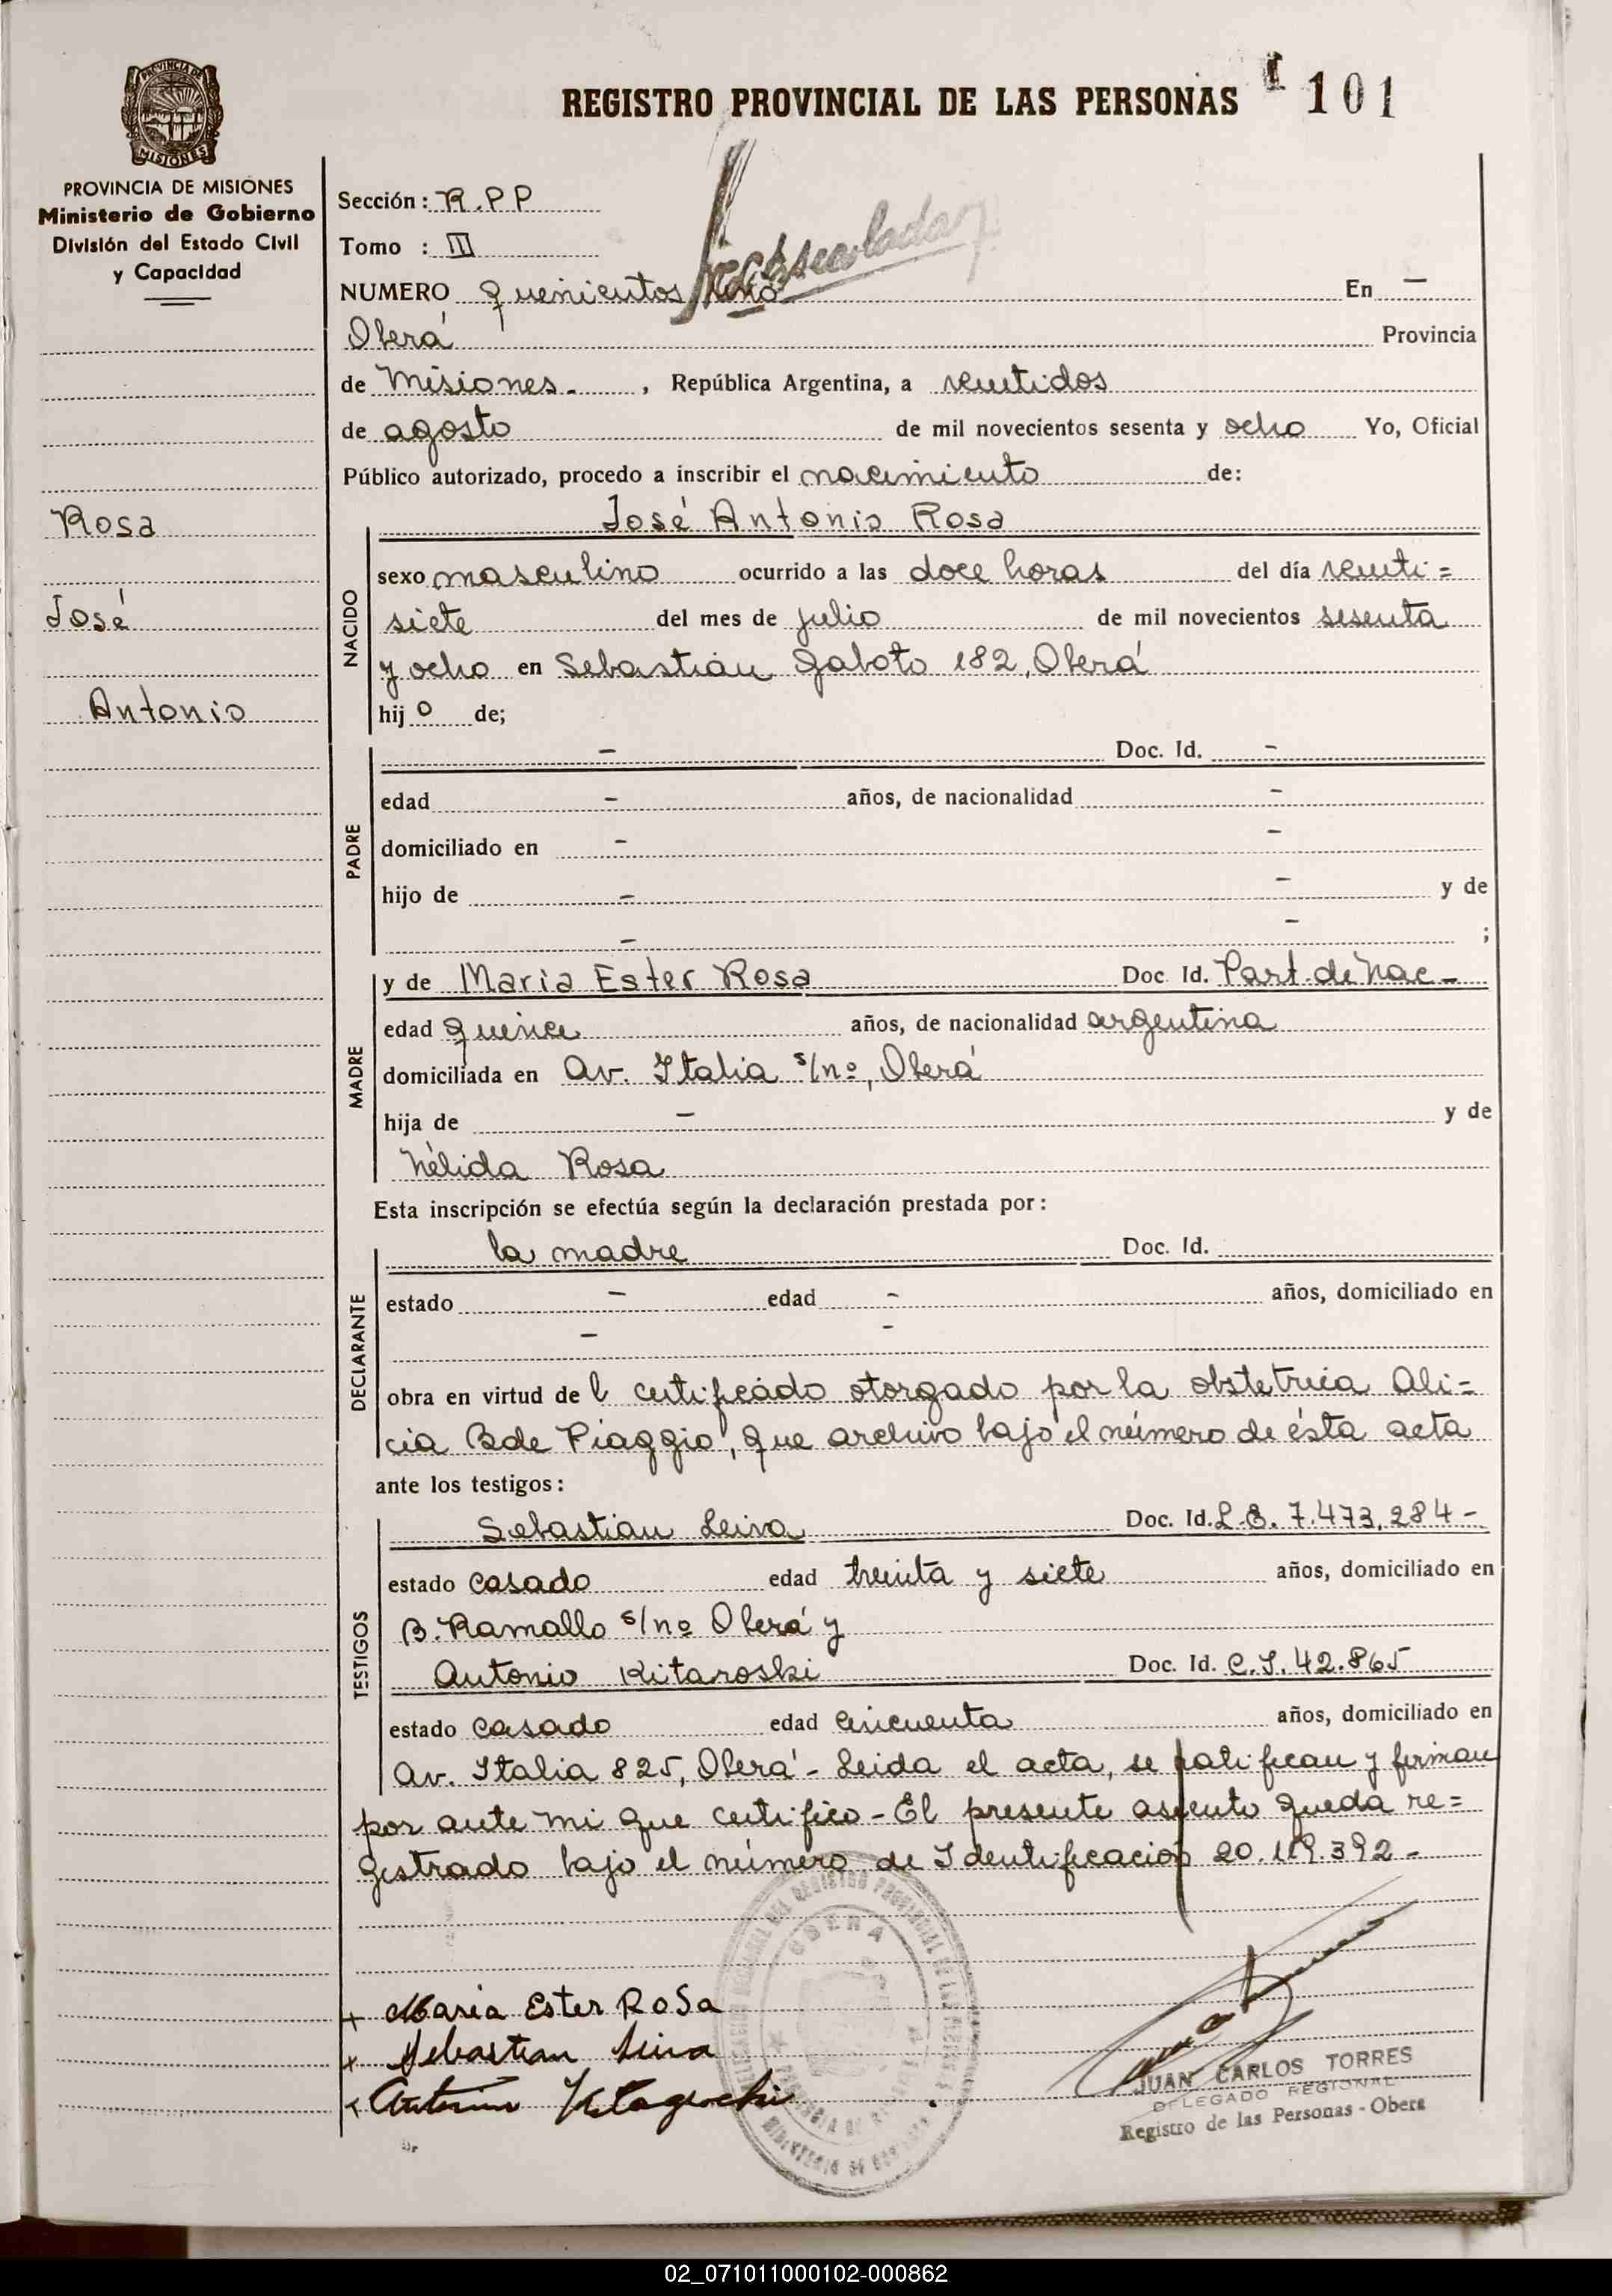 REGISTRO PROVINCIAL DE LAS PERSONAS 101
PROVINCIA DE MISIONES
MISIONES
PROVINCIA DE MISIONES
Ministerio de Gobierno
División del Estado Civil
y Capacidad
Rosa
José
Antonio
Sección: R.P.P
Tomo : III
NUMERO quinientos uno En —
Oberá Provincia
de Misiones. , República Argentina, a veintidos
de agosto de mil novecientos sesenta y ocho Yo, Oficial
Público autorizado, procedo a inscribir el nacimiento de:
José Antonio Rosa
NACIDO
sexo masculino ocurrido a las doce horas del día veinti=
siete del mes de julio de mil novecientos sesenta
y ocho en Sebastián Gaboto 182, Oberá
hijo de;
PADRE
— Doc. Id. —
edad — años, de nacionalidad —
domiciliado en — —
hijo de — — y de
— — ;
MADRE
y de Maria Ester Rosa Doc. Id. Part. de Nac-
edad quince años, de nacionalidad argentina
domiciliada en Av. Italia s/nº, Oberá
hija de — y de
Nélida Rosa
Esta inscripción se efectúa según la declaración prestada por:
DECLARANTE
la madre Doc. Id.
estado — edad — años, domiciliado en
— —
obra en virtud del certificado otorgado por la obstetrica Ali=
cia B de Piaggio, que archivo bajo el número de ésta acta
ante los testigos:
TESTIGOS
Sebastian Leiva Doc. Id. L.E. 7.473.284-
estado casado edad treinta y siete años, domiciliado en
B. Ramallo s/nº Oberá y
Antonio Kitaroski Doc. Id. C.I. 42.865
estado casado edad cincuenta años, domiciliado en
Av. Italia 825, Oberá - Leida el acta, se ratifican y firman
por ante mi que certifico - El presente asiento queda re=
gistrado bajo el número de Identificación 20.119.392-
+ Maria Ester Rosa
+ Sebastian Leiva
Antonio
OBERA
JUAN CARLOS TORRES
DELEGADO REGIONAL
Registro de las Personas - Obera
02_071011000102-000862